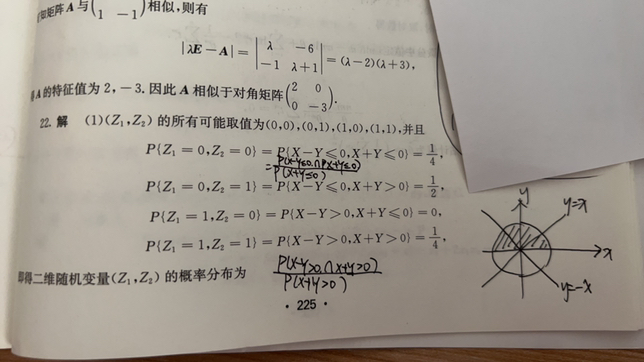 知矩阵 A 与 ( 1 -1 ) 相似,则有
|λE-A| = | λ -6 -1 λ+1 | = (λ-2)(λ+3),
A 的特征值为 2, -3. 因此 A 相似于对角矩阵 ( 2 0 0 -3 ).
22. 解 (1)(Z₁,Z₂) 的所有可能取值为(0,0),(0,1),(1,0),(1,1),并且
P{Z₁=0,Z₂=0} = P{X-Y≤0,X+Y≤0} = 1/4,
= P(X-Y≤0∩PX+Y≤0) / P(X+Y≤0)
P{Z₁=0,Z₂=1} = P{X-Y≤0,X+Y>0} = 1/2,
P{Z₁=1,Z₂=0} = P{X-Y>0,X+Y≤0} = 0,
P{Z₁=1,Z₂=1} = P{X-Y>0,X+Y>0} = 1/4,
y
y=x
x
y=-x
即得二维随机变量(Z₁,Z₂) 的概率分布为
P(X-Y>0∩X+Y>0) / P(X+Y>0)
· 225 ·